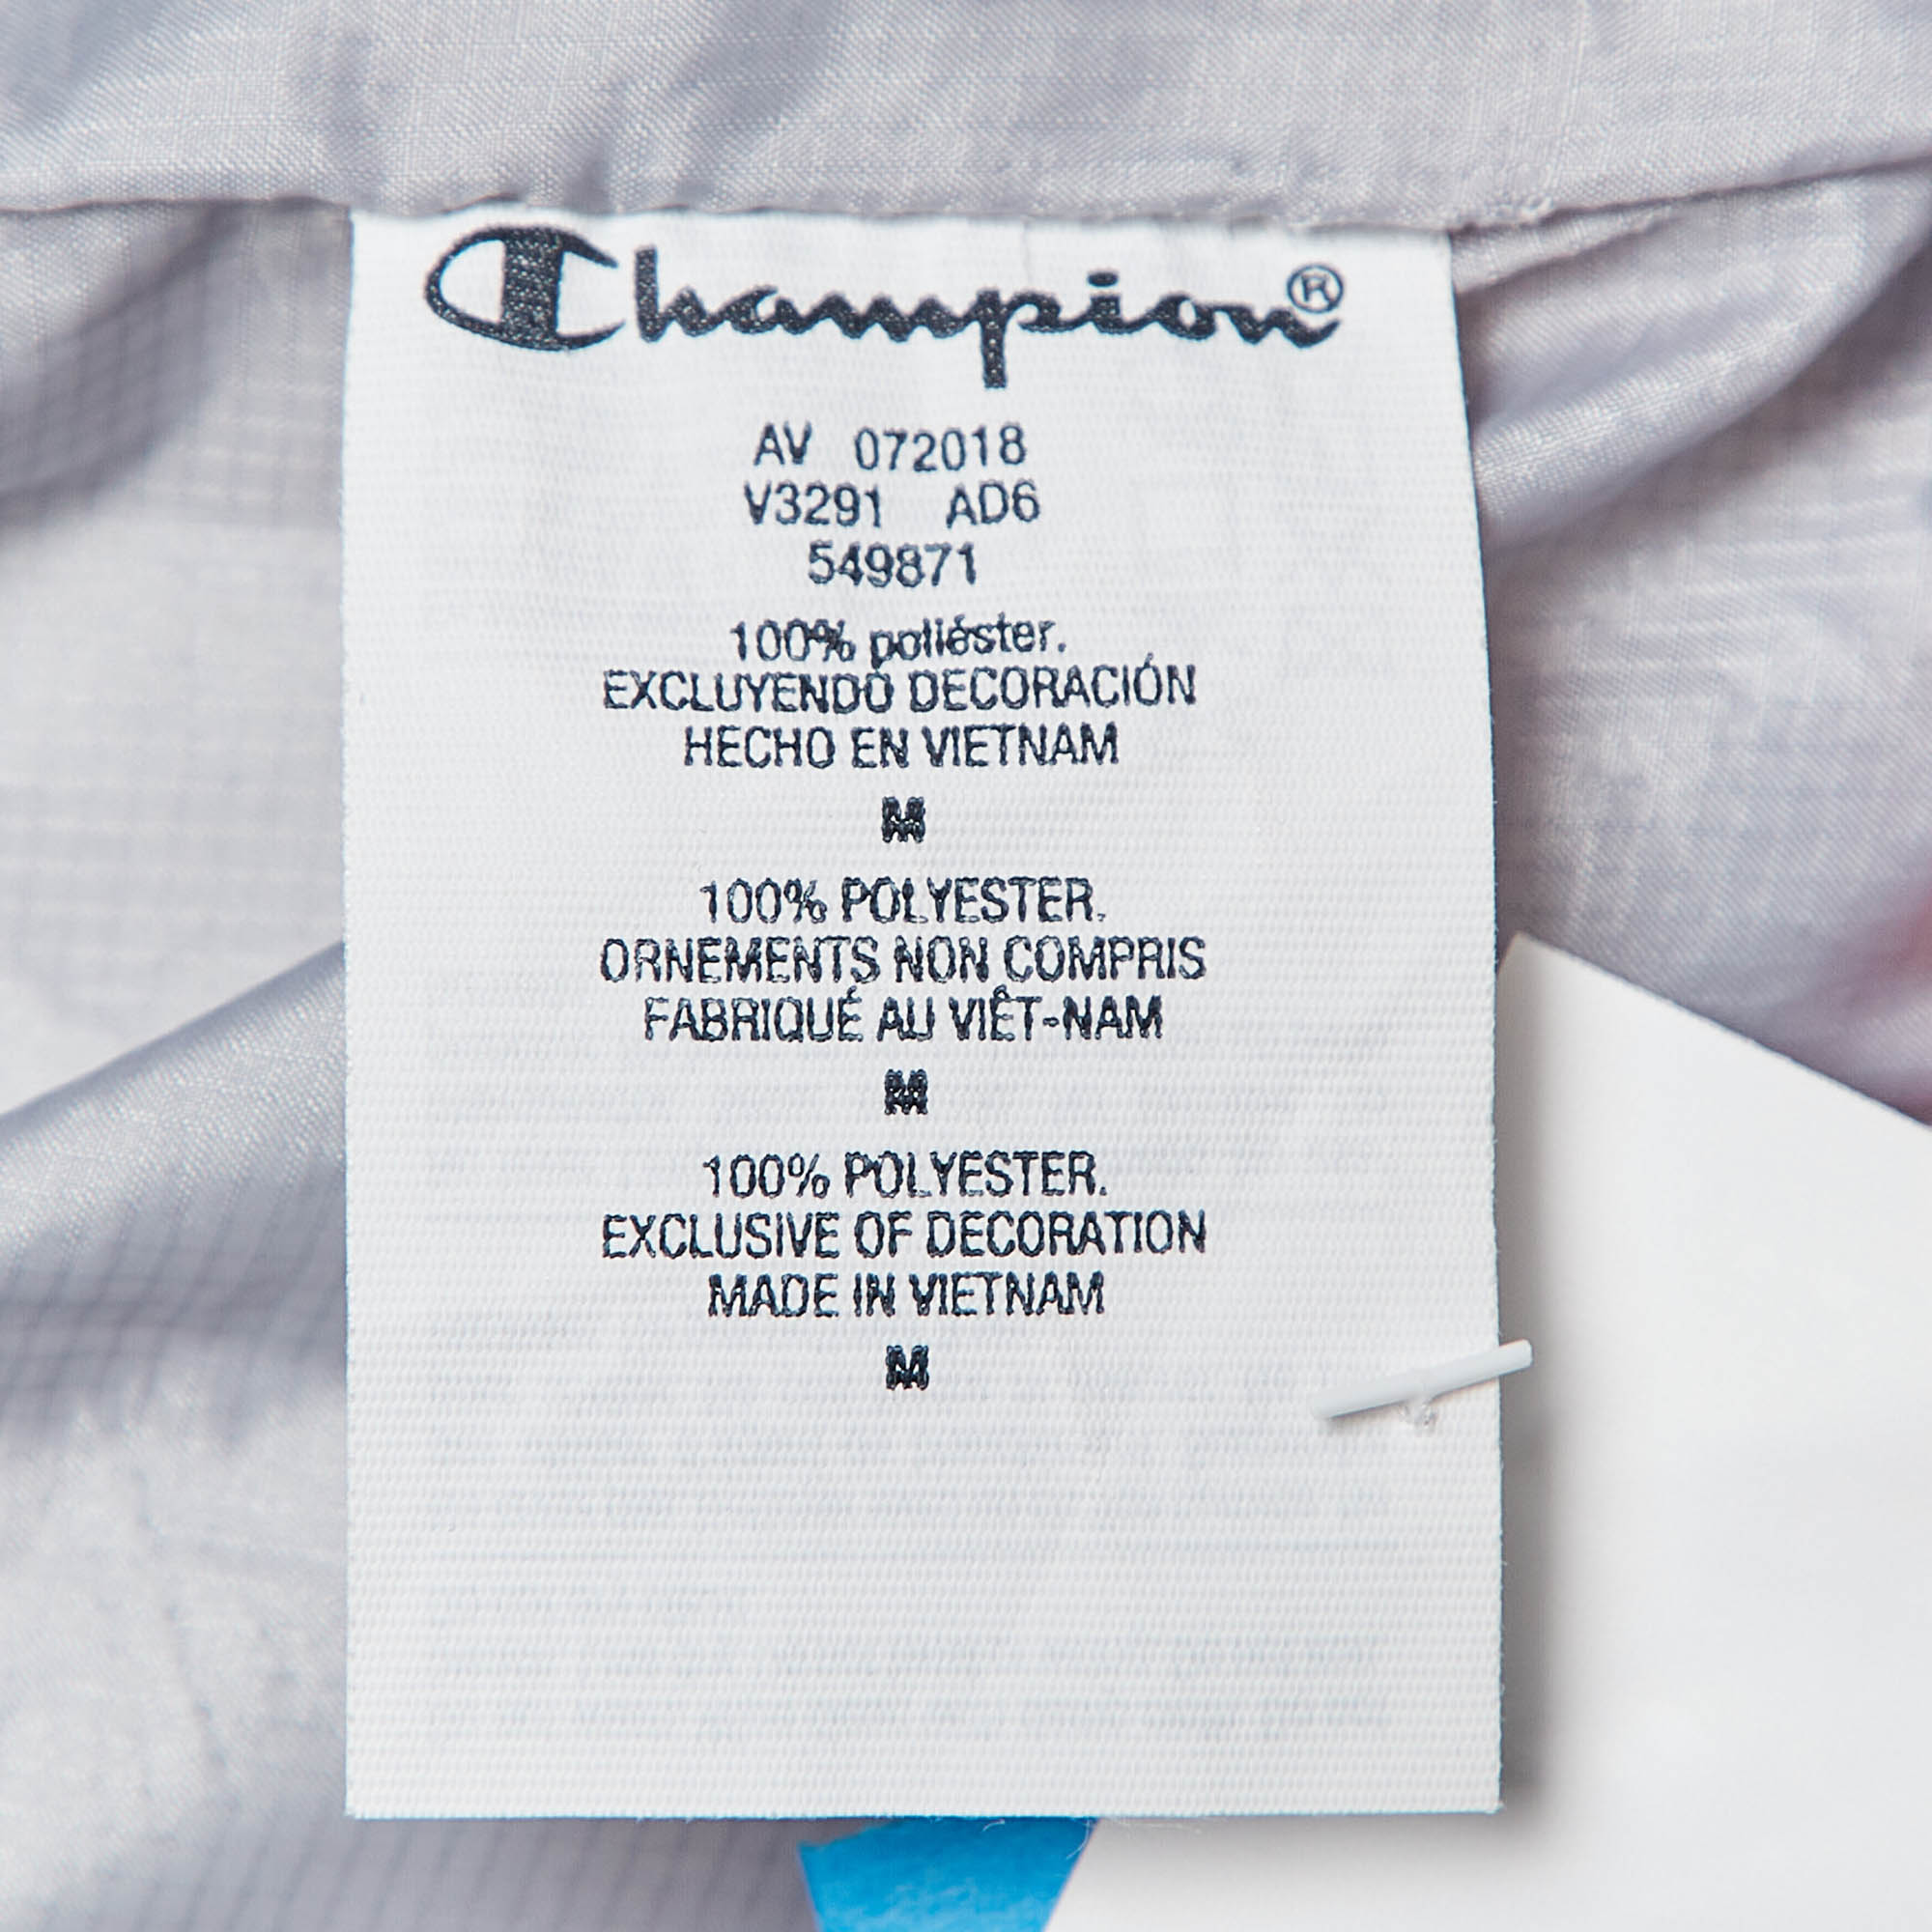 Champion®
AV 072018
V3291 AD6
549871
100% poliéster.
EXCLUYENDO DECORACIÓN
HECHO EN VIETNAM
M
100% POLYESTER.
ORNEMENTS NON COMPRIS
FABRIQUÉ AU VIÊT-NAM
M
100% POLYESTER.
EXCLUSIVE OF DECORATION
MADE IN VIETNAM
M